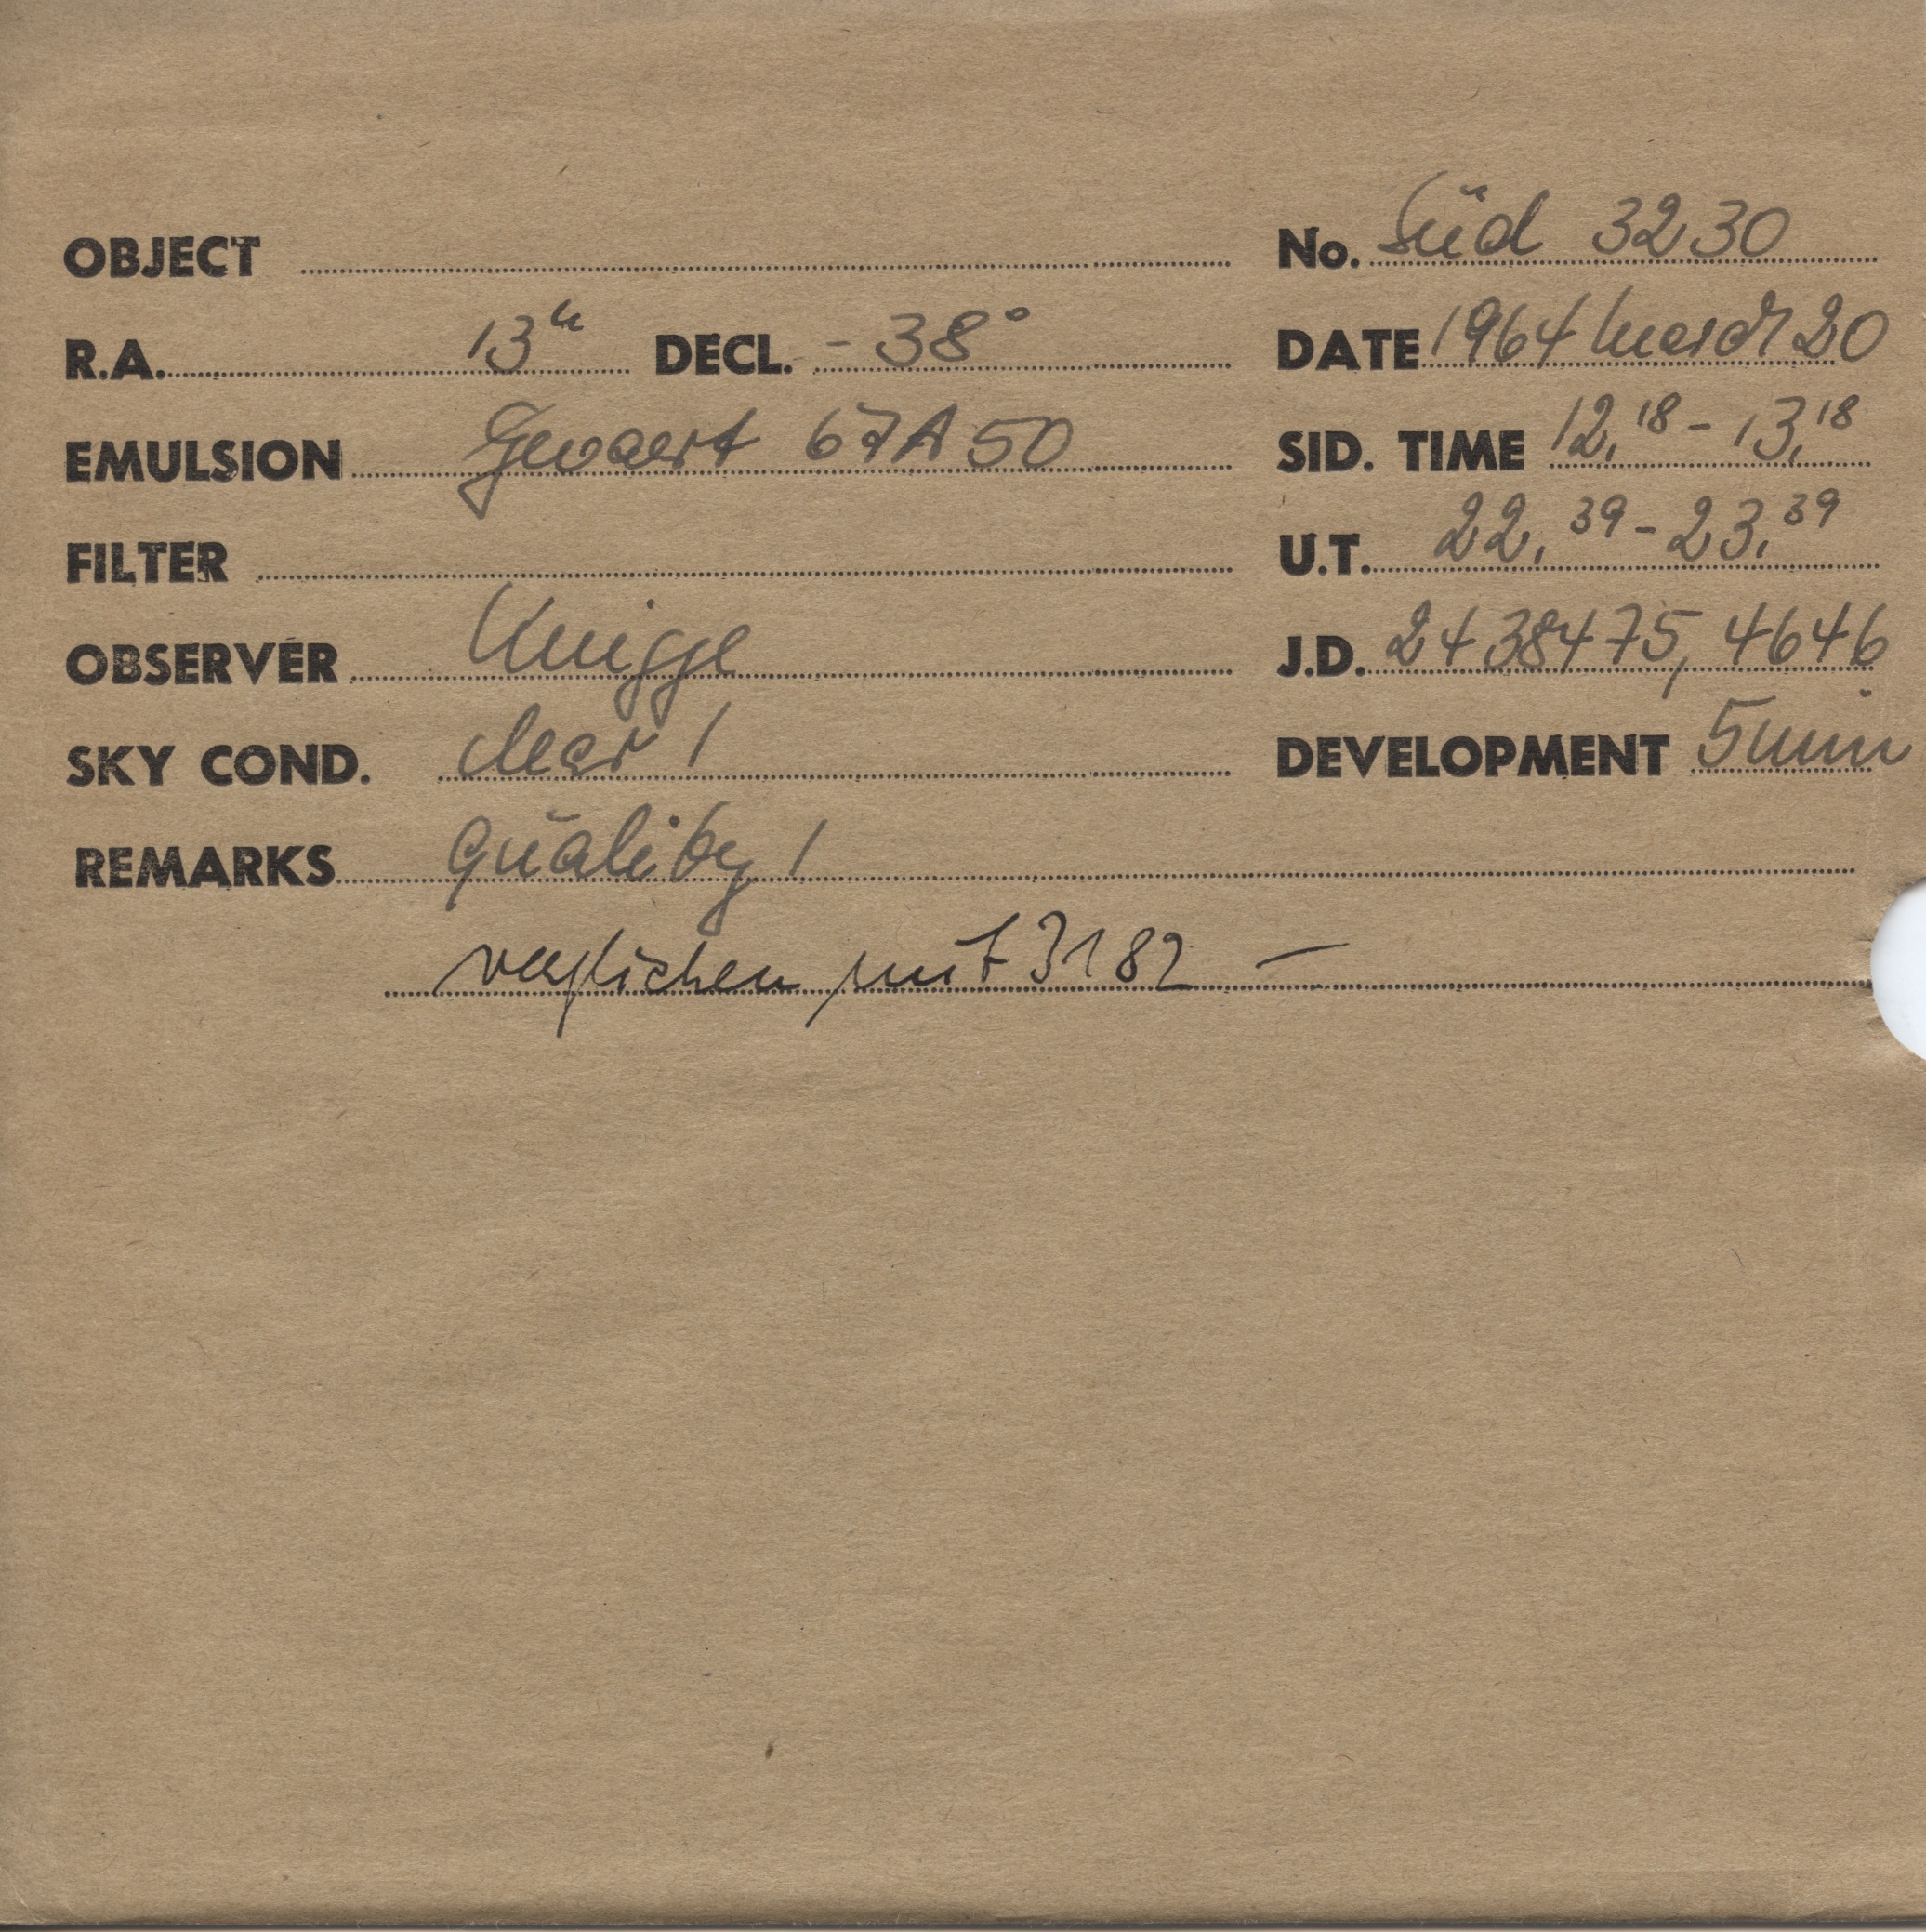 OBJECT No. Süd 3230
R.A. 13h DECL. - 38° DATE 1964 March 20
EMULSION Gevaert 67A50 SID. TIME 12,18 - 13,18
FILTER U.T. 22,39 - 23,39
OBSERVER Knigge J.D. 2438475,4646
SKY COND. clear 1 DEVELOPMENT 5 min
REMARKS Quality 1
verglichen mit 3182 –